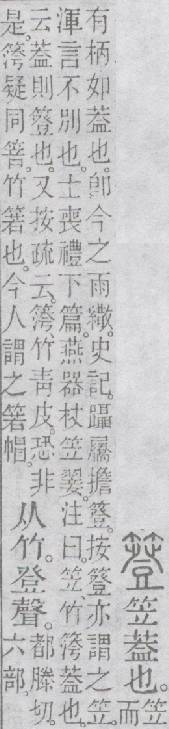 簦笠葢也。笠
而
有柄如葢也。卽今之雨繖。史記。躡屩擔簦。按簦亦謂之笠。
渾言不別也。士喪禮下篇。燕器杖笠翣。注曰。笠、竹䈝葢也。
云葢則簦也。又按疏云。䈝竹靑皮。恐非
是。䈝疑同箬。竹箬也。今人謂之箬帽。
从竹。登聲。都滕切。
六部。